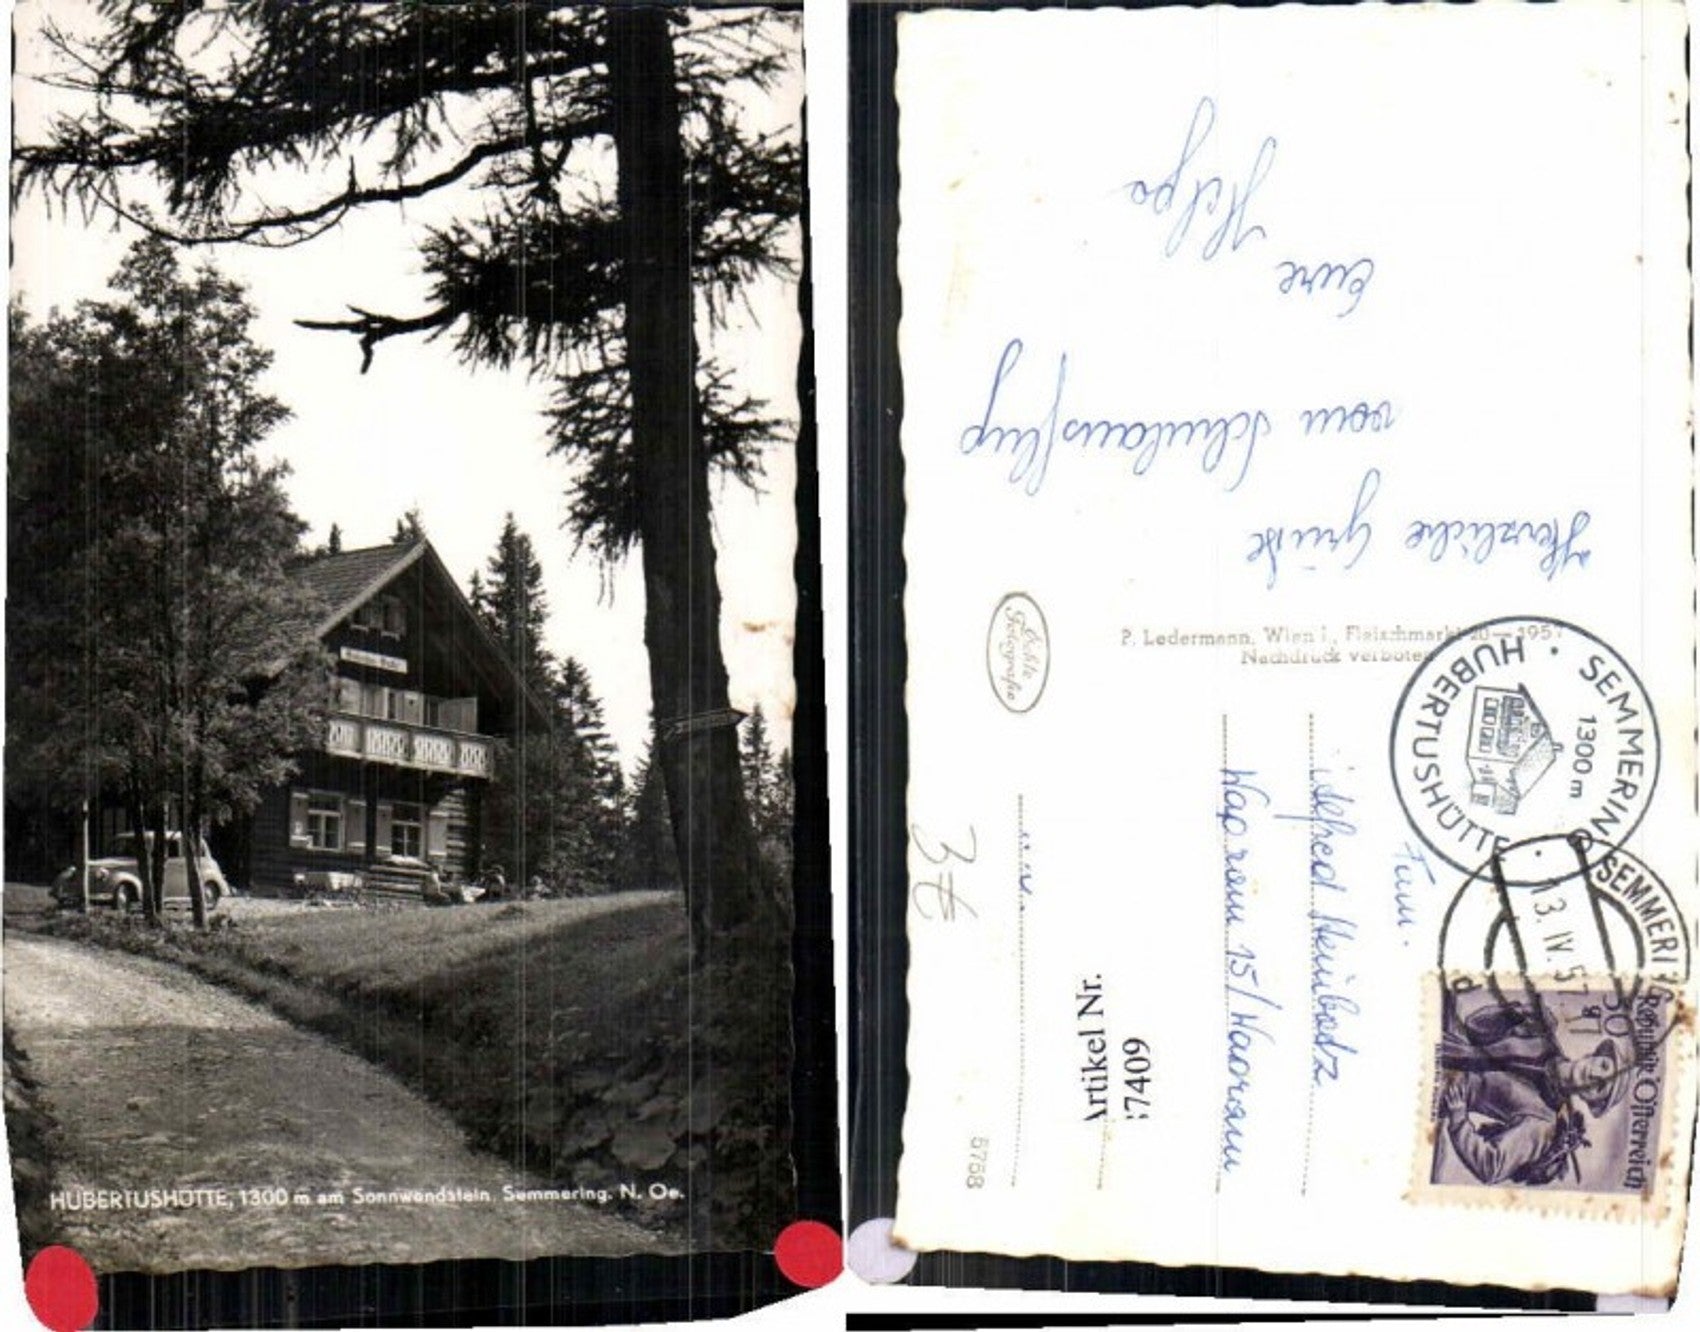 HUBERTUSHÜTTE, 1300 m am Sonnwendstein, Semmering, N. Oe.
Herzliche Grüße
vom Schulausflug
Eure
Helga
Echte
Fotografie
P. Ledermann, Wien I., Fleischmarkt 20 — 1957
Nachdruck verboten
SEMMERING · HUBERTUSHÜTTE ·
1300 m
SEMMERING
13. IV. 57
Republik Österreich
30
Fam.
15/
3€
Artikel Nr.
7409
5758